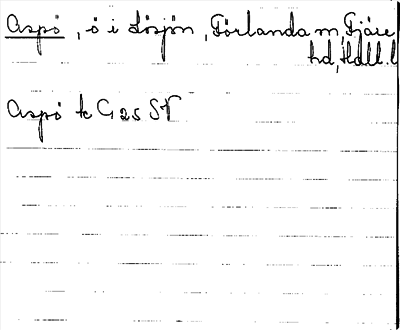 Aspö, ö i Lösjön, Förlanda m, Fjäre
hd, Hall. l
Aspö tc G 25 SV